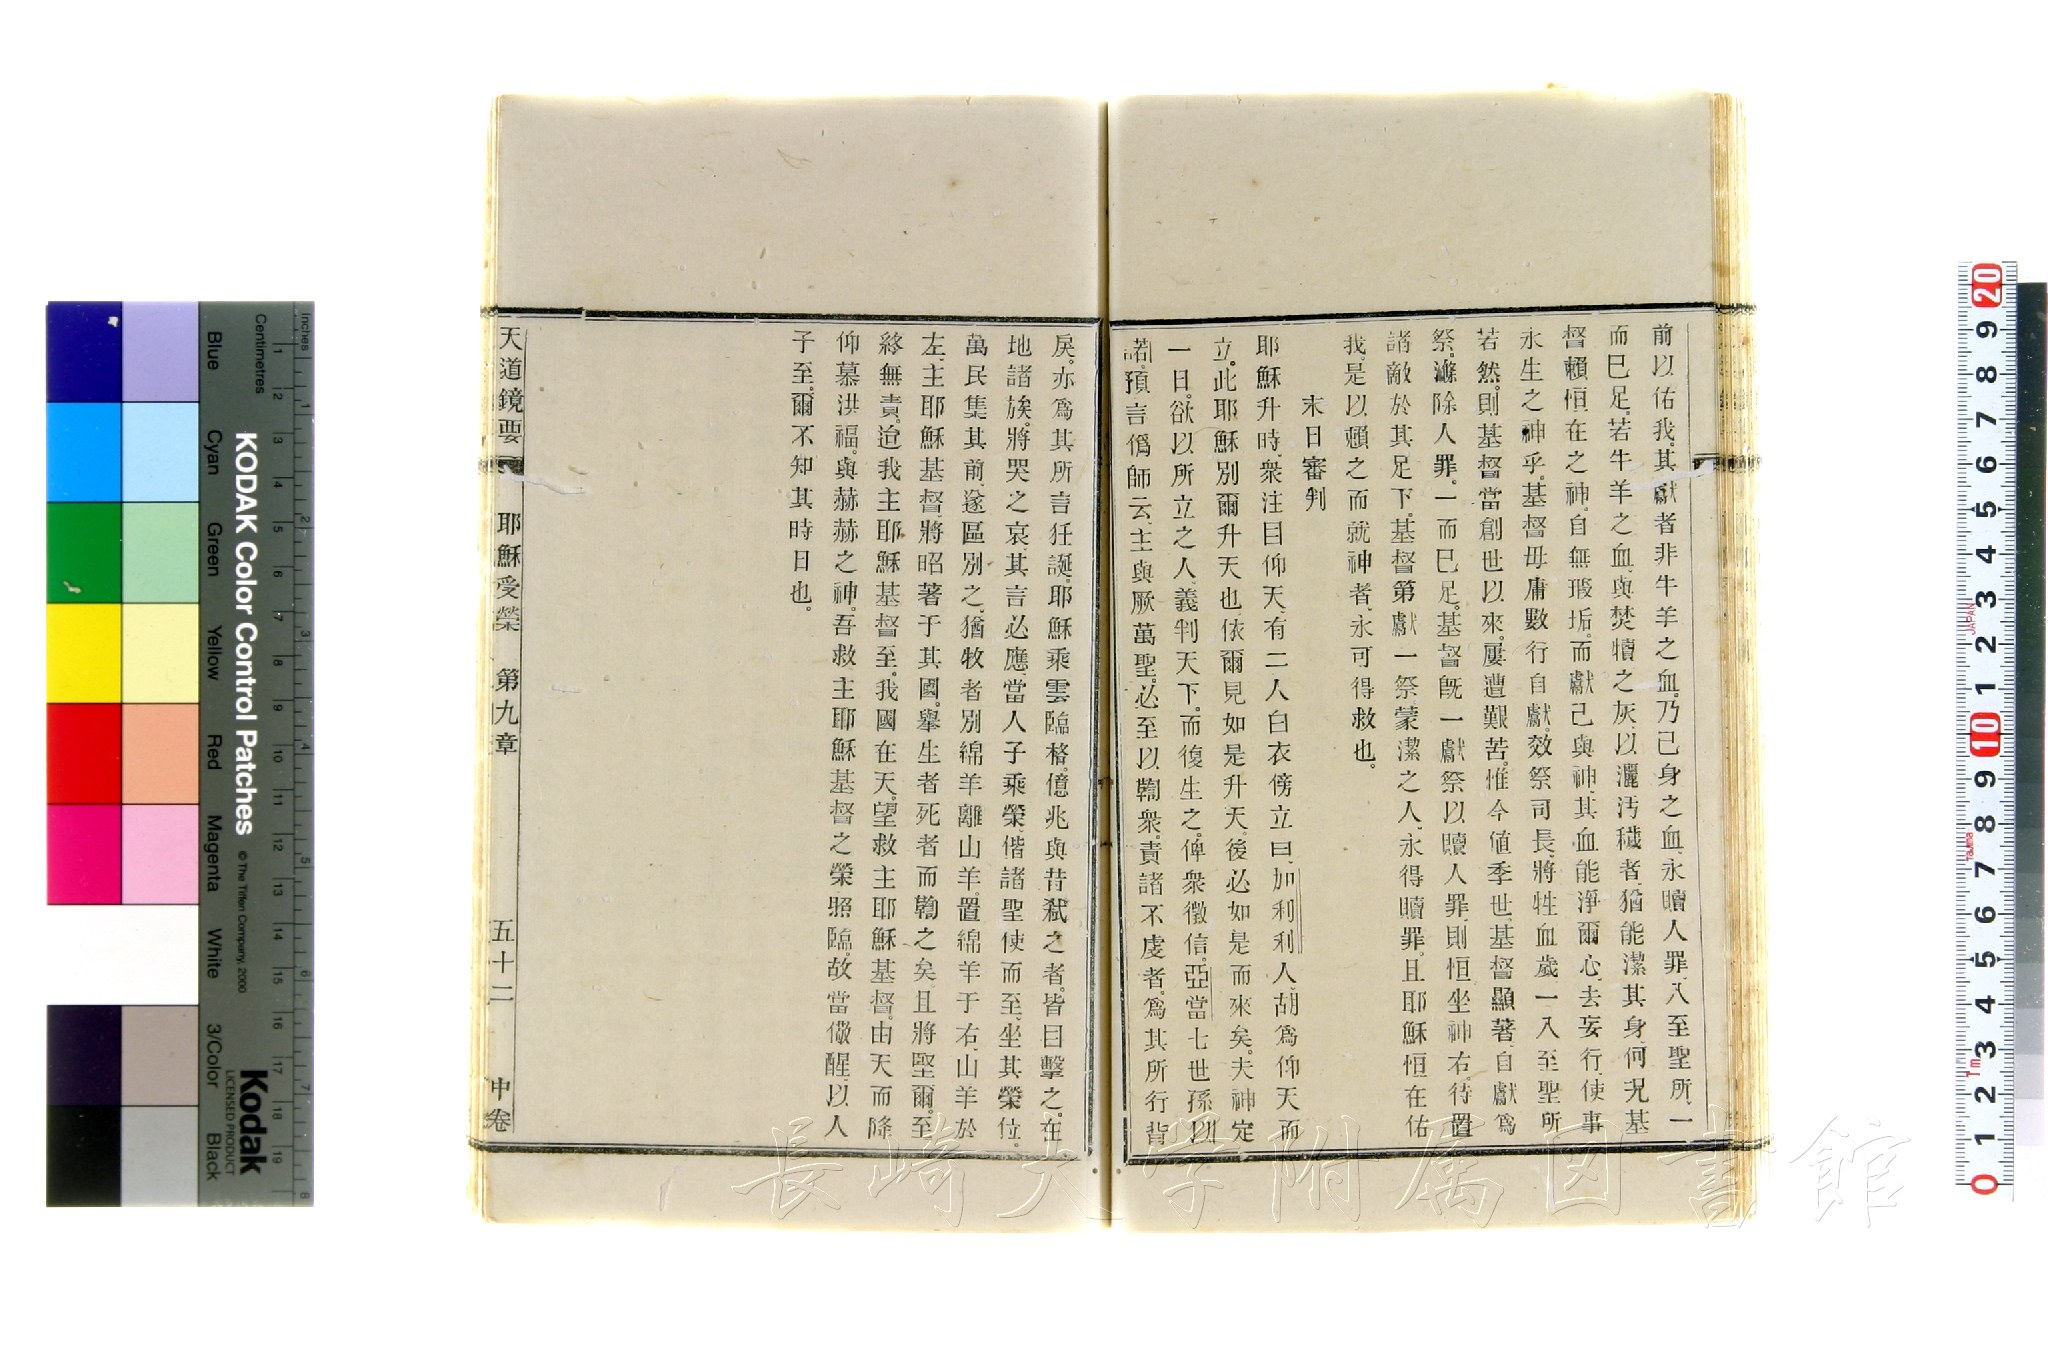 前以佑我。其獻者非牛羊之血。乃己身之血、永贖人罪、入至聖所、一
而已足。若牛羊之血、與焚犢之灰、以灑汚穢者、猶能潔其身、何況基
督賴恒在之神、自無瑕垢。而獻己與神、其血能淨爾心、去妄行、使事
永生之神乎。基督毋庸數行自獻、效祭司長、將牲血歲一入至聖所
若然、則基督當創世以來、屢遭艱苦。惟今値季世、基督顯著、自獻爲
祭。滌除人罪。一而已足。基督旣一獻祭以贖人罪、則恒坐神右、待置
諸敵於其足下。基督第獻一祭、蒙潔之人、永得贖罪。且耶穌恒在佑
我、是以賴之而就神者、永可得救也。
末日審判
耶穌升時、衆注目仰天、有二人白衣傍立曰、加利利人、胡爲仰天而
立。此耶穌別爾升天也、依爾見如是升天、後必如是而來矣。夫神定
一日。欲以所立之人、義判天下。而復生之、俾衆徵信。亞當七世孫以
諾。預言僞師云、主與厥萬聖。必至以鞫衆。責諸不虔者。爲其所行背
戾。亦爲其所言狂誕。耶穌乘雲臨格。億兆與昔弑之者。皆目擊之。在
地諸族。將哭之哀。其言必應、當人子乘榮、偕諸聖使而至、坐其榮位。
萬民集其前、遂區別之、猶牧者別綿羊離山羊。置綿羊于右、山羊於
左、主耶穌基督、將昭著于其國。擧生者死者而鞫之矣、且將堅爾。至
終無責。迨我主耶穌基督至。我國在天。望救主耶穌基督。由天而降
仰慕洪福。與赫赫之神。吾救主耶穌基督之榮照臨。故當儆醒以人
子至。爾不知其時日也。
天道鏡要 耶穌受榮 第九章 五十二 中卷
長崎大学附属図書館
Inches
Centimetres
KODAK Color Control Patches
© The Tiffen Company, 2000
Kodak
LICENSED PRODUCT
Blue Cyan Green Yellow Red Magenta White 3/Color Black
1 2 3 4 5 6 7 8
1 2 3 4 5 6 7 8 9 10 11 12 13 14 15 16 17 18 19
20 9 8 7 6 5 4 3 2 1 10 9 8 7 6 5 4 3 2 1 0
JAPAN
1m